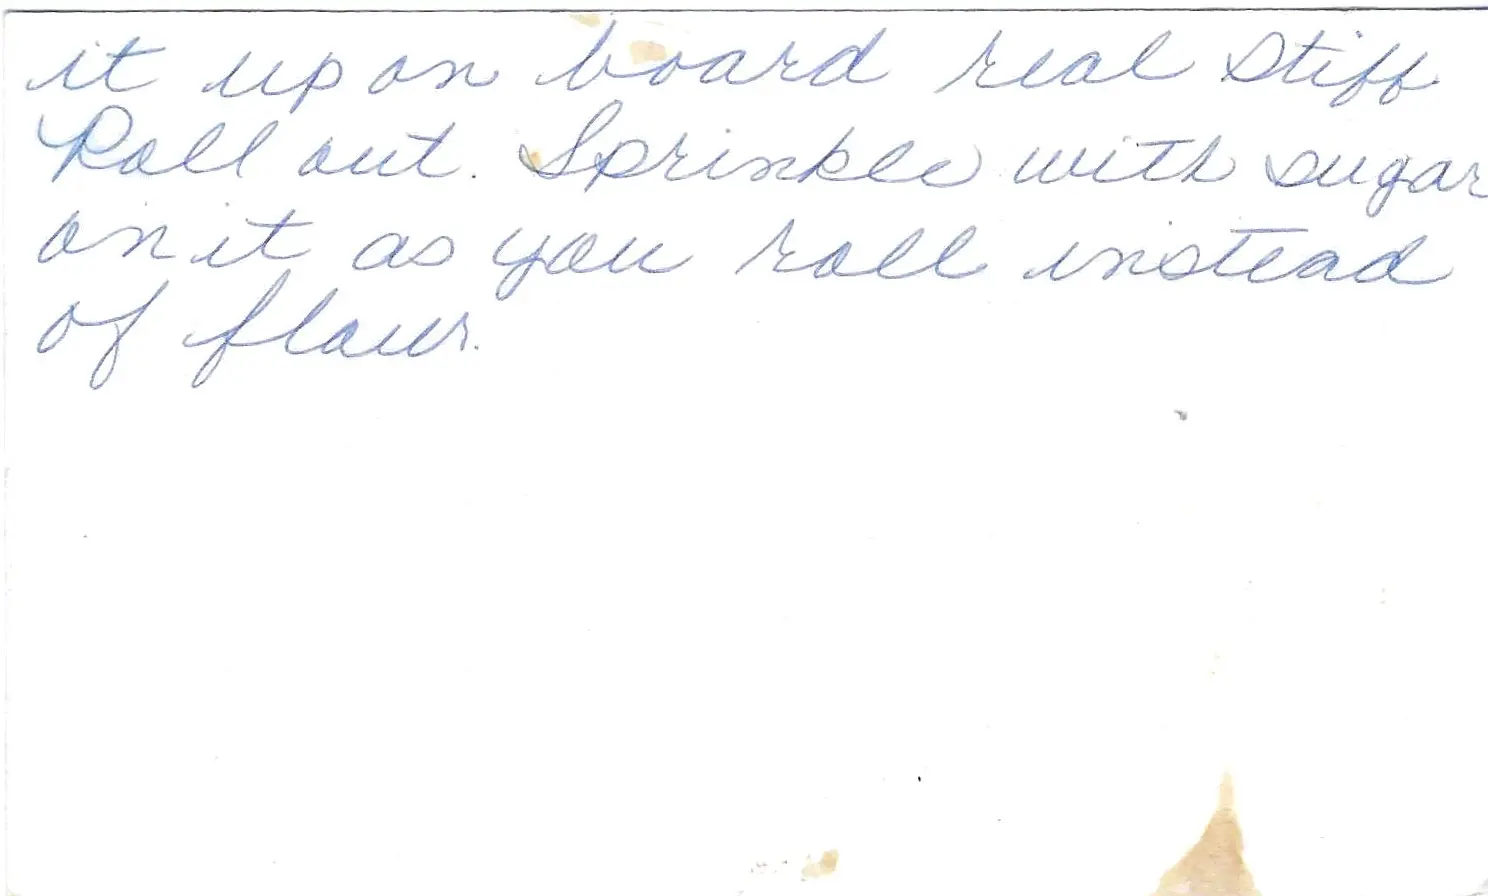 it up on board real stiff
Roll out. Sprinkle with sugar
on it as you roll instead
of flour.